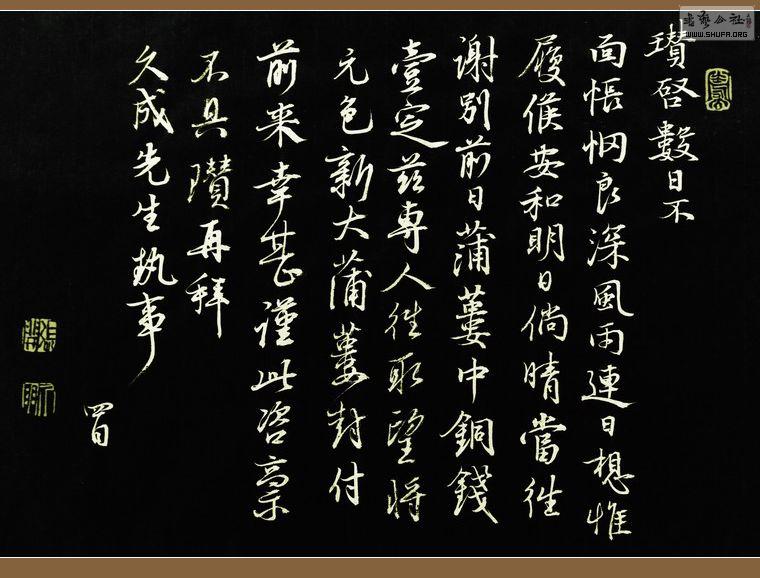 瓚啓數日不
面悵惘良深風雨連日想惟
履候安和明日倘晴當徃
謝別前日蒲蔞中銅錢
壹定茲專人徃取望將
元色新大蒲蔞封付
前来幸甚謹此咨禀
不具瓚再拜
久成先生執事
四日
书法公社
WWW.SHUFA.ORG